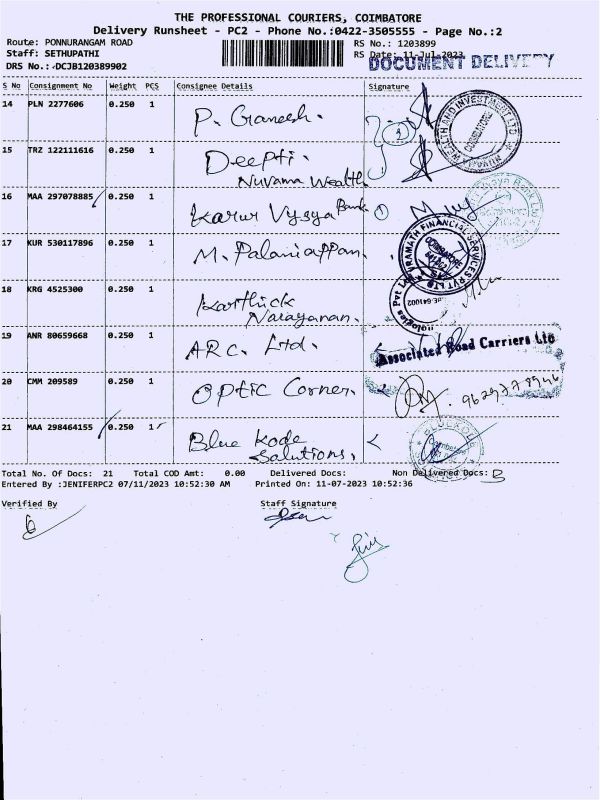 THE PROFESSIONAL COURIERS, COIMBATORE
Delivery Runsheet - PC2 - Phone No.:0422-3505555 - Page No.:2
Route: PONNURANGAM ROAD
RS No.: 1203899
Staff: SETHUPATHI
RS Date: 11-Jul-2023
DOCUMENT DELIVERY
DRS No.: DCJB120389902
S No Consignment No Weight PCS Consignee Details Signature
14 PLN 2277606 0.250 1 P. Ganesh.
WEALTH AND INVESTMENT LTD
COIMBATORE
15 TRZ 122111616 0.250 1 Deepti.
Nuvama Wealth
16 MAA 297078885 0.250 1 Karur Vysya Bank
17 KUR 530117896 0.250 1 M. Palaniappan.
FINANCIAL SERVICES PVT LTD
18 KRG 4525300 0.250 1 Karthick
Narayanan.
19 ANR 80659668 0.250 1 ARC. Ltd.
Associated Road Carriers Ltd
20 CMM 209589 0.250 1 Optic Corner.
21 MAA 298464155 0.250 1 Blue Kode
Solutions,
Total No. Of Docs: 21 Total COD Amt: 0.00 Delivered Docs: Non Delivered Docs:
Entered By :JENIFERPC2 07/11/2023 10:52:30 AM Printed On: 11-07-2023 10:52:36
Verified By Staff Signature